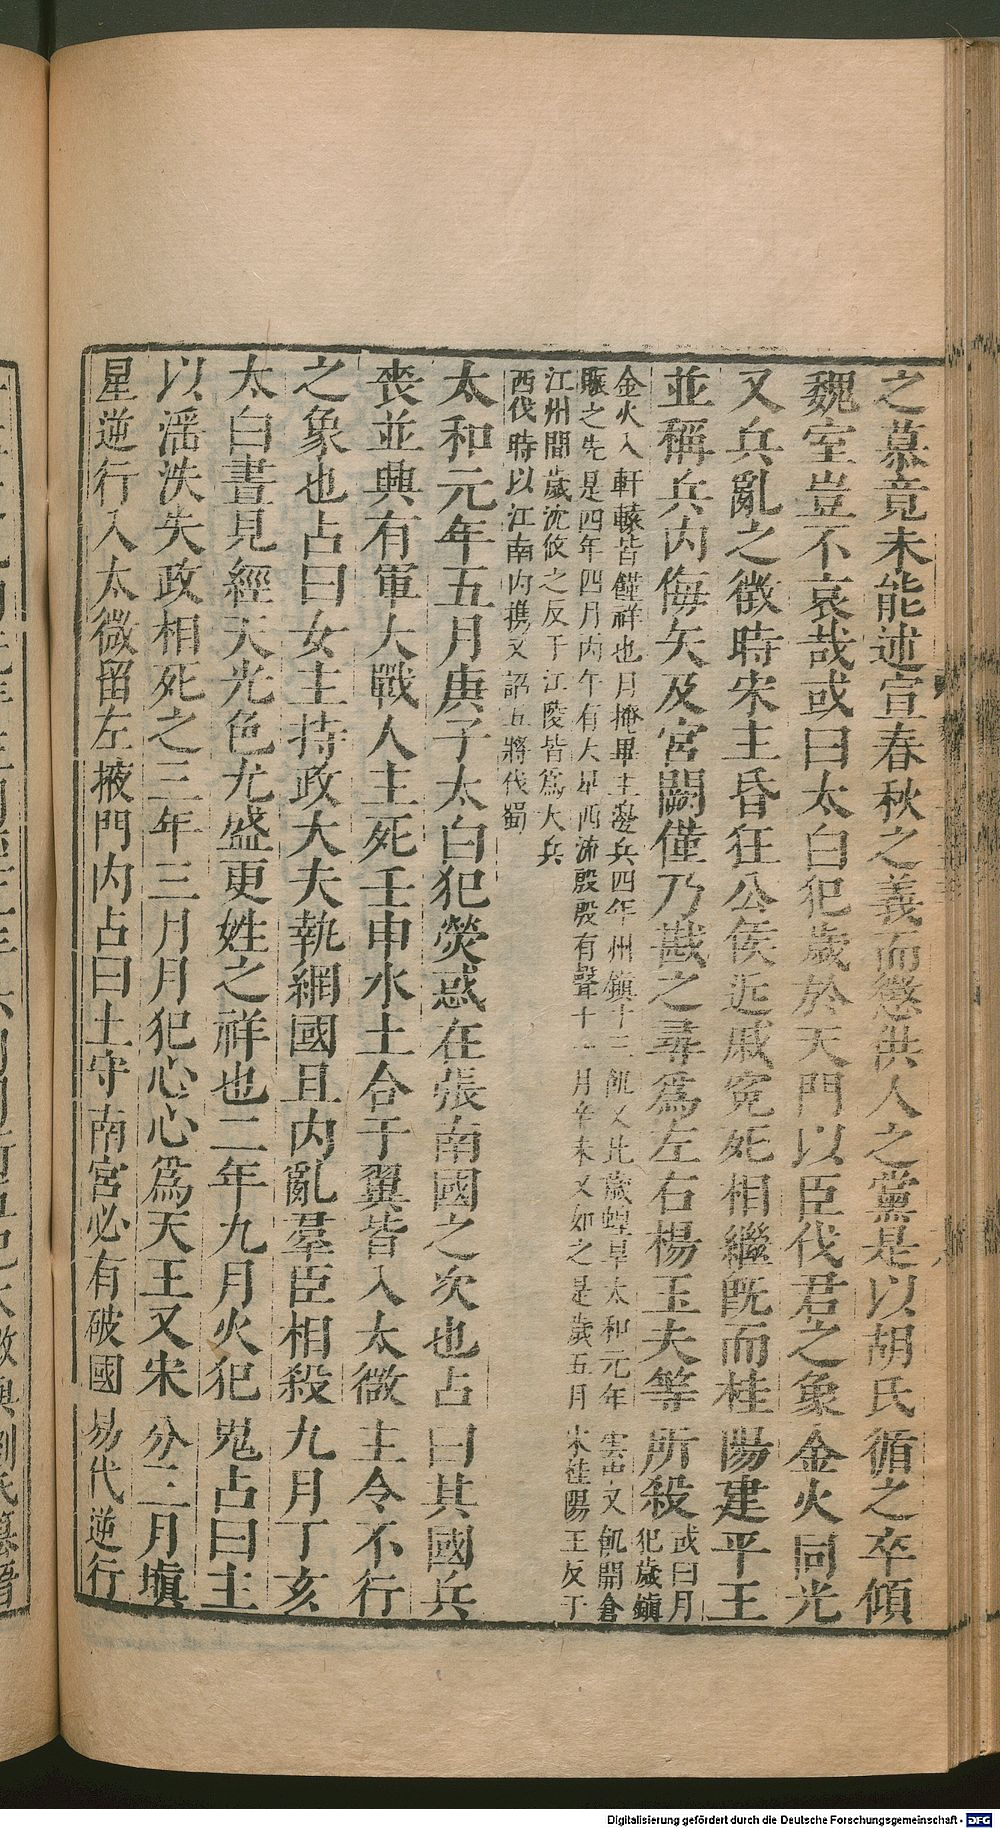 之慕竟未能述宣春秋之義而懲洪人之黨是以胡氏循之卒傾
魏室豈不哀哉或曰太白犯歲於天門以臣伐君之象金火同光
又兵亂之徵時宋主昏狂公侯近戚冤死相繼旣而桂陽建平王
並稱兵內侮矣及宮闕僅乃戡之尋爲左右楊玉夫等所殺
或曰月犯歲鎮
金火入軒轅皆饉祥也月掩畢主邊兵四年州鎮十三飢又比歲蝗旱太和元年雲中又飢開倉
賑之先是四年四月丙午有大星西流殷殷有聲十一月辛未又如之是歲五月宋桂陽王反于
江州間歲沈攸之反于江陵皆爲大兵
西伐時以江南內攜又詔五將伐蜀
太和元年五月庚子太白犯熒惑在張南國之次也占曰其國兵
喪並興有軍大戰人主死壬申水土合于翼皆入太微主令不行
之象也占曰女主持政大夫執綱國且內亂羣臣相殺九月丁亥
太白晝見經天光色尤盛更姓之祥也二年九月火犯鬼占曰主
以淫泆失政相死之三年三月月犯心心爲天王又宋分三月塡
星逆行入太微留左掖門內占曰土守南宮必有破國易代逆行
Digitalisierung gefördert durch die Deutsche Forschungsgemeinschaft - DFG